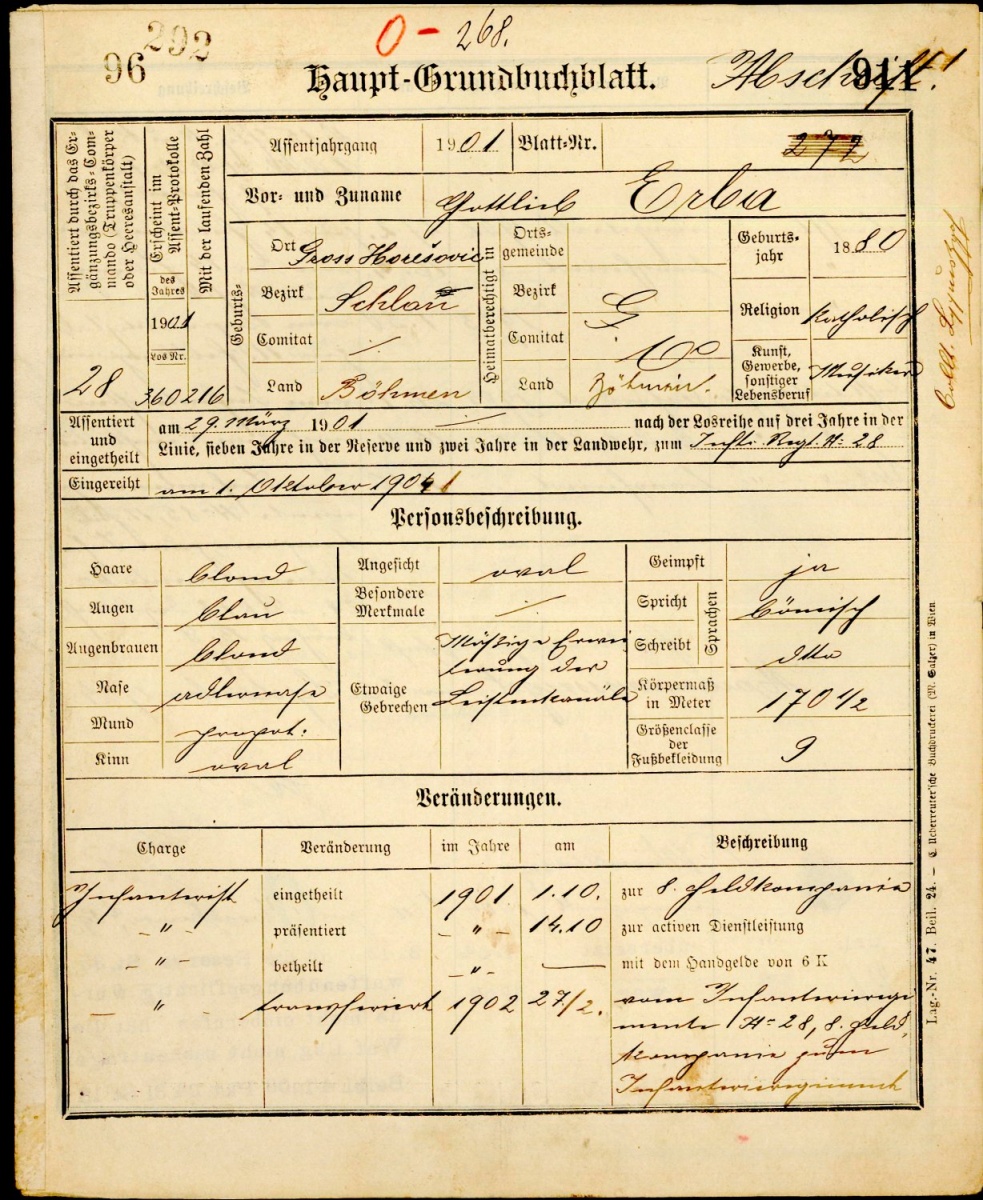 292
96
0 - 268.
Haupt-Grundbuchblatt.
Abschrift.
911
Assentiert durch das Er-
gänzungsbezirks-Com-
mando (Truppenkörper
oder Heeresanstalt)
28
Erscheint im
Assent-Protokolle
des
Jahres
1901
Los Nr.
360
Mit der laufenden Zahl
216
Assentjahrgang 1901 Blatt-Nr. 272
Vor- und Zuname Gottlieb Erba
Geburts-
Ort Gross Horešovic
Bezirk Schlan
Comitat ./.
Land Böhmen
Heimatberechtigt in
Orts-
gemeinde
Bezirk
Comitat
Land Böhmen.
Geburts-
jahr 1880
Religion katholisch
Kunst,
Gewerbe,
sonstiger
Lebensberuf Musiker
Assentiert
und
eingetheilt
am 29. März 1901 ./. nach der Losreihe auf drei Jahre in der
Linie, sieben Jahre in der Reserve und zwei Jahre in der Landwehr, zum Inft. Regt. N: 28
Eingereiht am 1. Oktober 1901
Personsbeschreibung.
Haare blond
Augen blau
Augenbrauen blond
Nase adlernase
Mund propot:
Kinn oval
Angesicht oval
Besondere
Merkmale ./.
Etwaige
Gebrechen
Mäßige Erwei
terung der
Leistenkanäle
Geimpft ja
Spricht böhmisch
Schreibt dtto
Sprachen
Körpermaß
in Meter 170 1/2
Größenclasse
der
Fußbekleidung 9
Veränderungen.
Charge Veränderung im Jahre am Beschreibung
Infanterist eingetheilt 1901 1.10. zur 8. Feldkompanie
- " - präsentiert - " - 14.10 zur activen Dienstleistung
- " - betheilt - " - — mit dem Handgelde von 6 K
- " transferiert 1902 27/2. vom Infanterieregi
mente N= 28, 8. Feld
kompanie zum
Infanterieregiment
Lag.-Nr. 47. Beil. 24. — C. Ueberreuter'sche Buchdruckerei (M. Salzer) in Wien